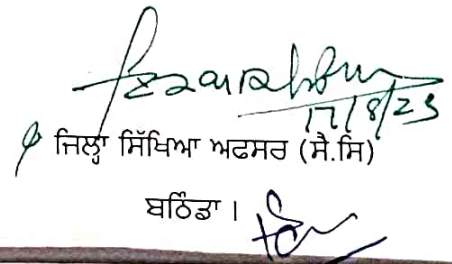 17/8/23
ਜਿਲ੍ਹਾ ਸਿੱਖਿਆ ਅਫਸਰ (ਸੈ.ਸਿ)
ਬਠਿੰਡਾ ।